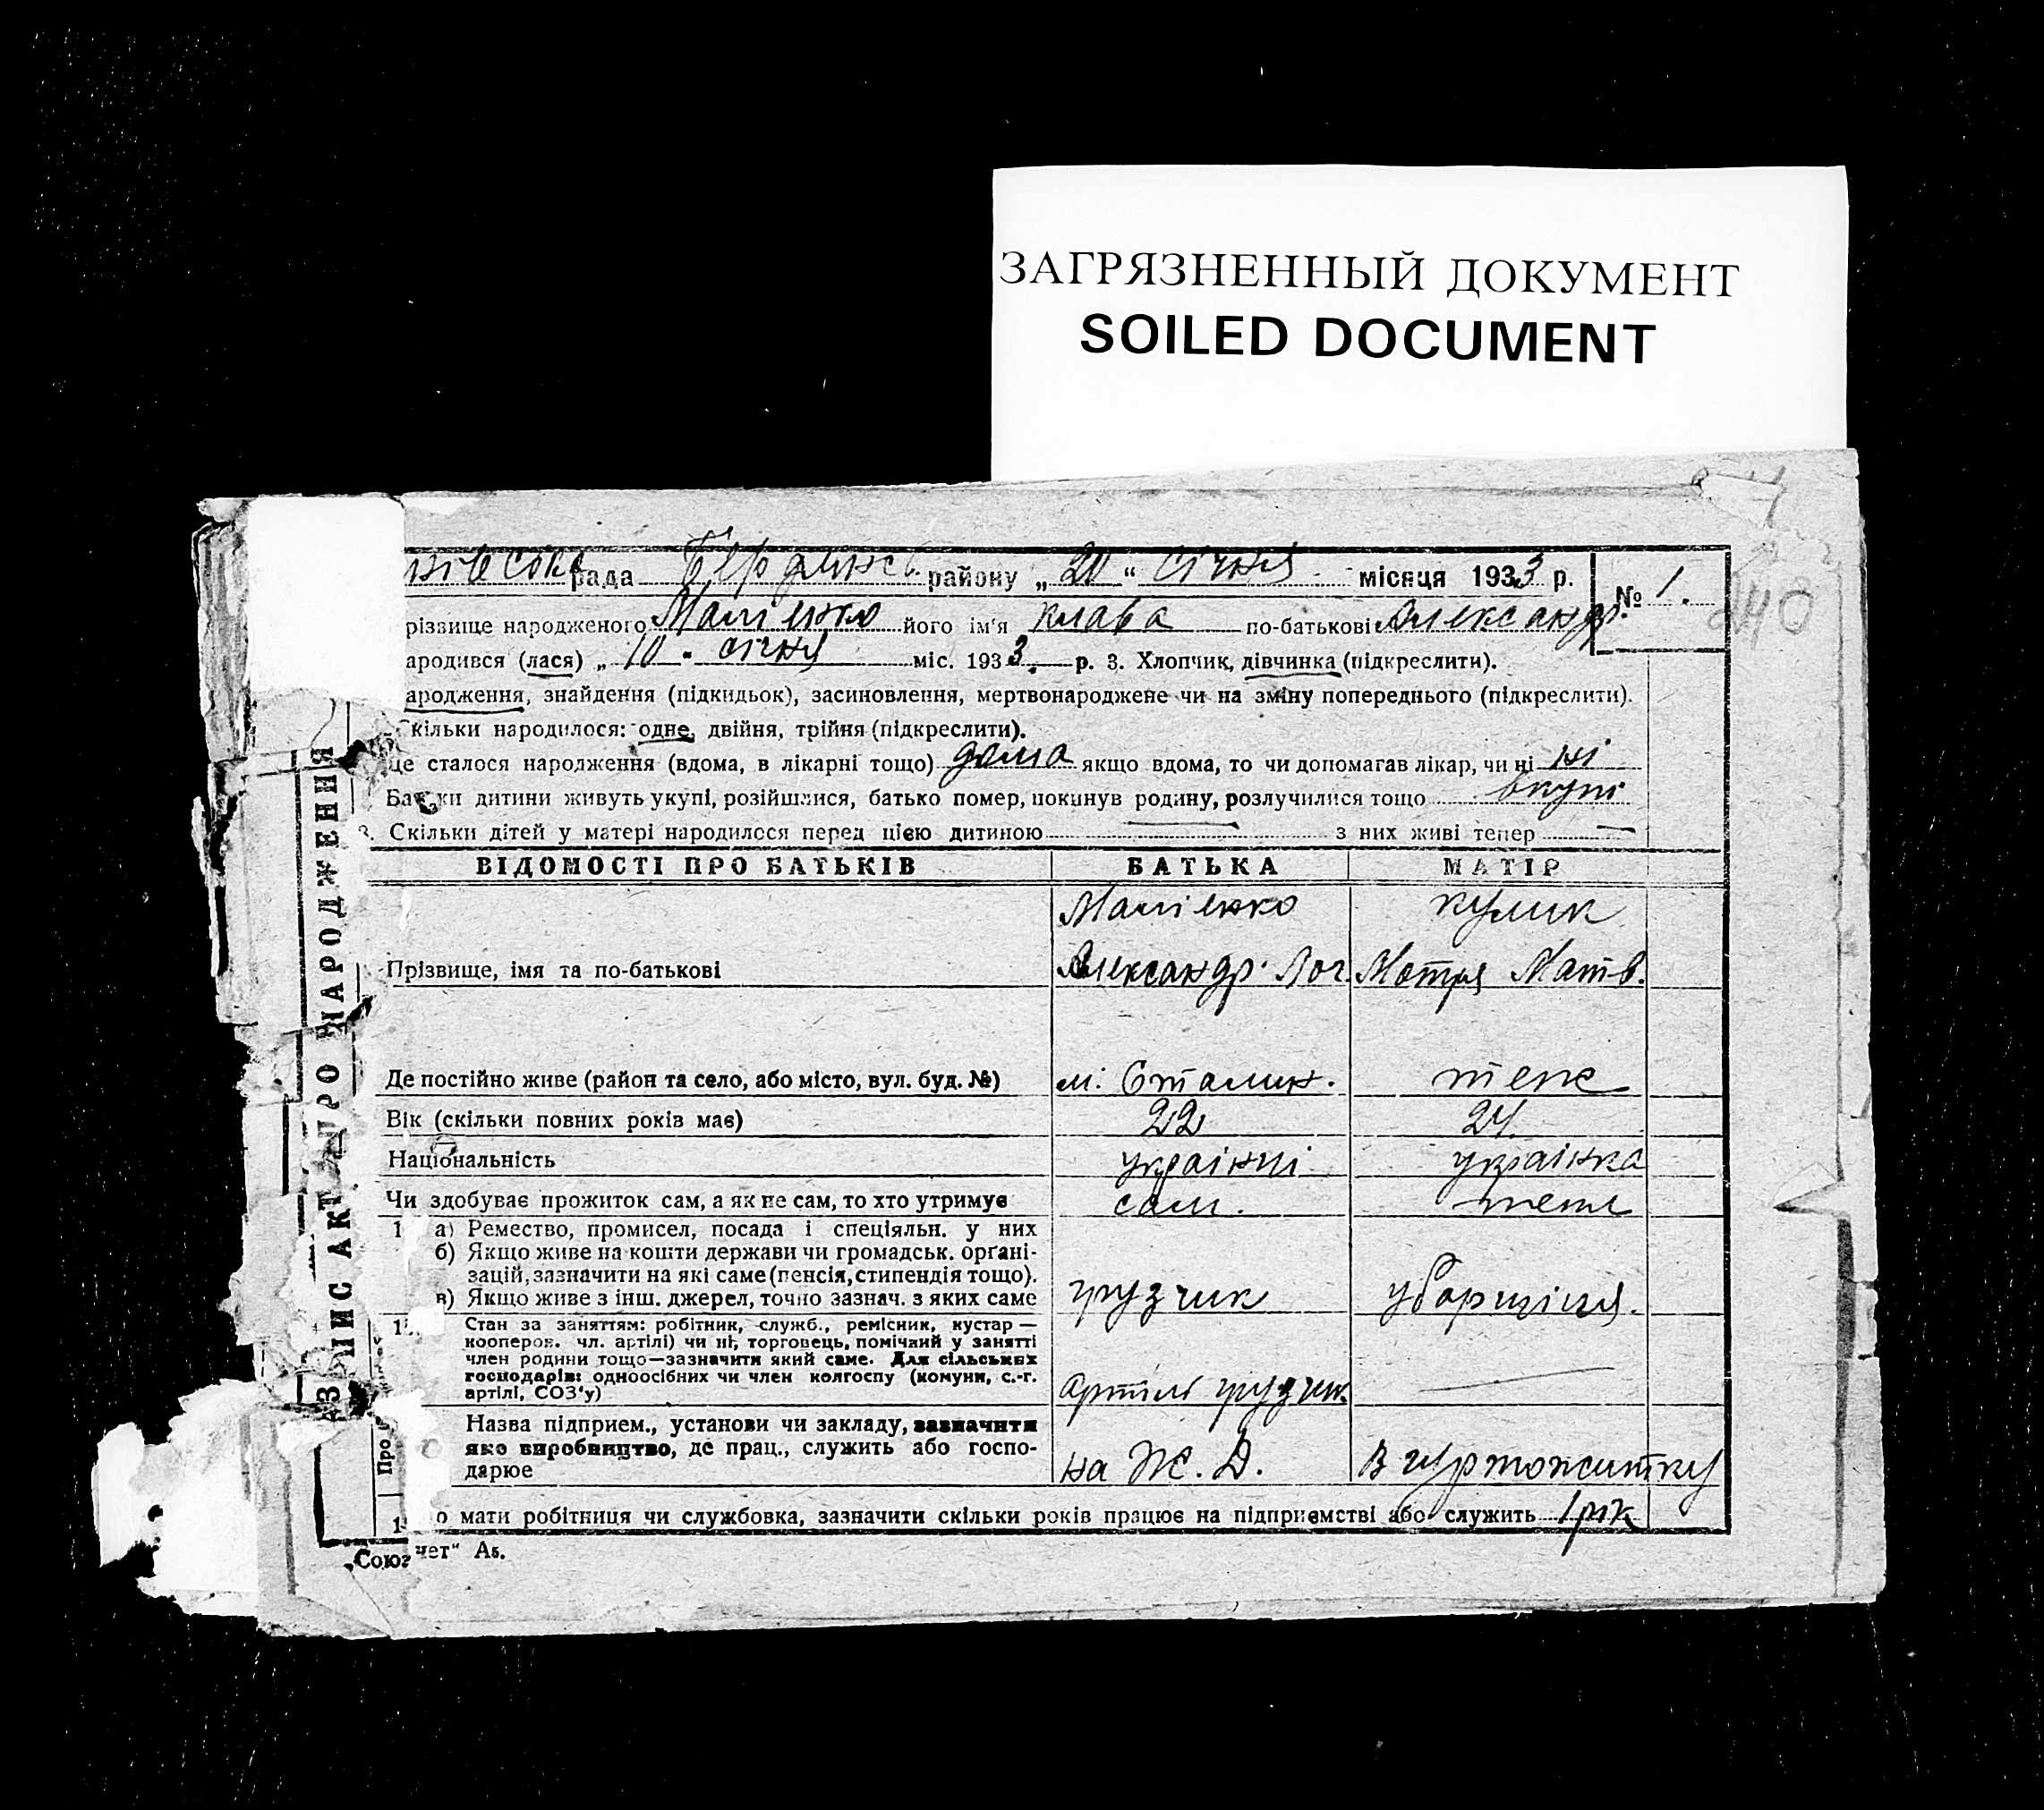 ЗАГРЯЗНЕННЫЙ ДОКУМЕНТ
SOILED DOCUMENT
рада Бердянс. району „20“ січня місяця 1933 р. № 1.
240
різвище народженого його ім'я клава по-батькові Александр.
ародився (лася) „10" січня міс. 1933. р. 3. Хлопчик, дівчинка (підкреслити).
ародження, знайдення (підкидьок), засиновлення, мертвонароджене чи на зміну попереднього (підкреслити).
Скільки народилося: одне, двійня, трійня (підкреслити).
це сталося народження (вдома, в лікарні тощо) дома якщо вдома, то чи допомагав лікар, чи ні ні
Батьки дитини живуть укупі, розійшлися, батько помер, покинув родину, розлучилися тощо вкупі
8. Скільки дітей у матері народилося перед цією дитиною — з них живі тепер —
ВІДОМОСТІ ПРО БАТЬКІВ БАТЬКА МАТІР
кулик
Прізвище, імя та по-батькові Александр. Мотря Матв.
Де постійно живе (район та село, або місто, вул. буд. №) м. Сталин. теж
Вік (скільки повних років має) 22 24
Національність українці українка
Чи здобуває прожиток сам, а як не сам, то хто утримує сам. теж
1 а) Ремество, промисел, посада і спеціяльн. у них
б) Якщо живе на кошти держави чи громадськ. орґані-
зацій, зазначити на які саме (пенсія, стипендія тощо).
в) Якщо живе з інш. джерел, точно зазнач. з яких саме грузчик уборщіця.
Стан за заняттям: робітник, служб., ремісник, кустар —
кооперов. чл. артілі) чи ні, торговець, помічний у занятті
член родини тощо—зазначити який саме. Для сільських
господарів: одноосібних чи член колгоспу (комуни, с.-г.
артілі, СОЗ'у) артіль грузчик. —
Назва підприєм., установи чи закладу, зазначити
яко виробництво, де прац., служить або госпо-
дарює на Ж. Д. В гуртожитку
о мати робітниця чи службовка, зазначити скільки років працює на підприємстві або служить 1 рік
„Союз чет“ А5.
ЗАПИС АКТ ПРО НАРОДЖЕННЯ
Про